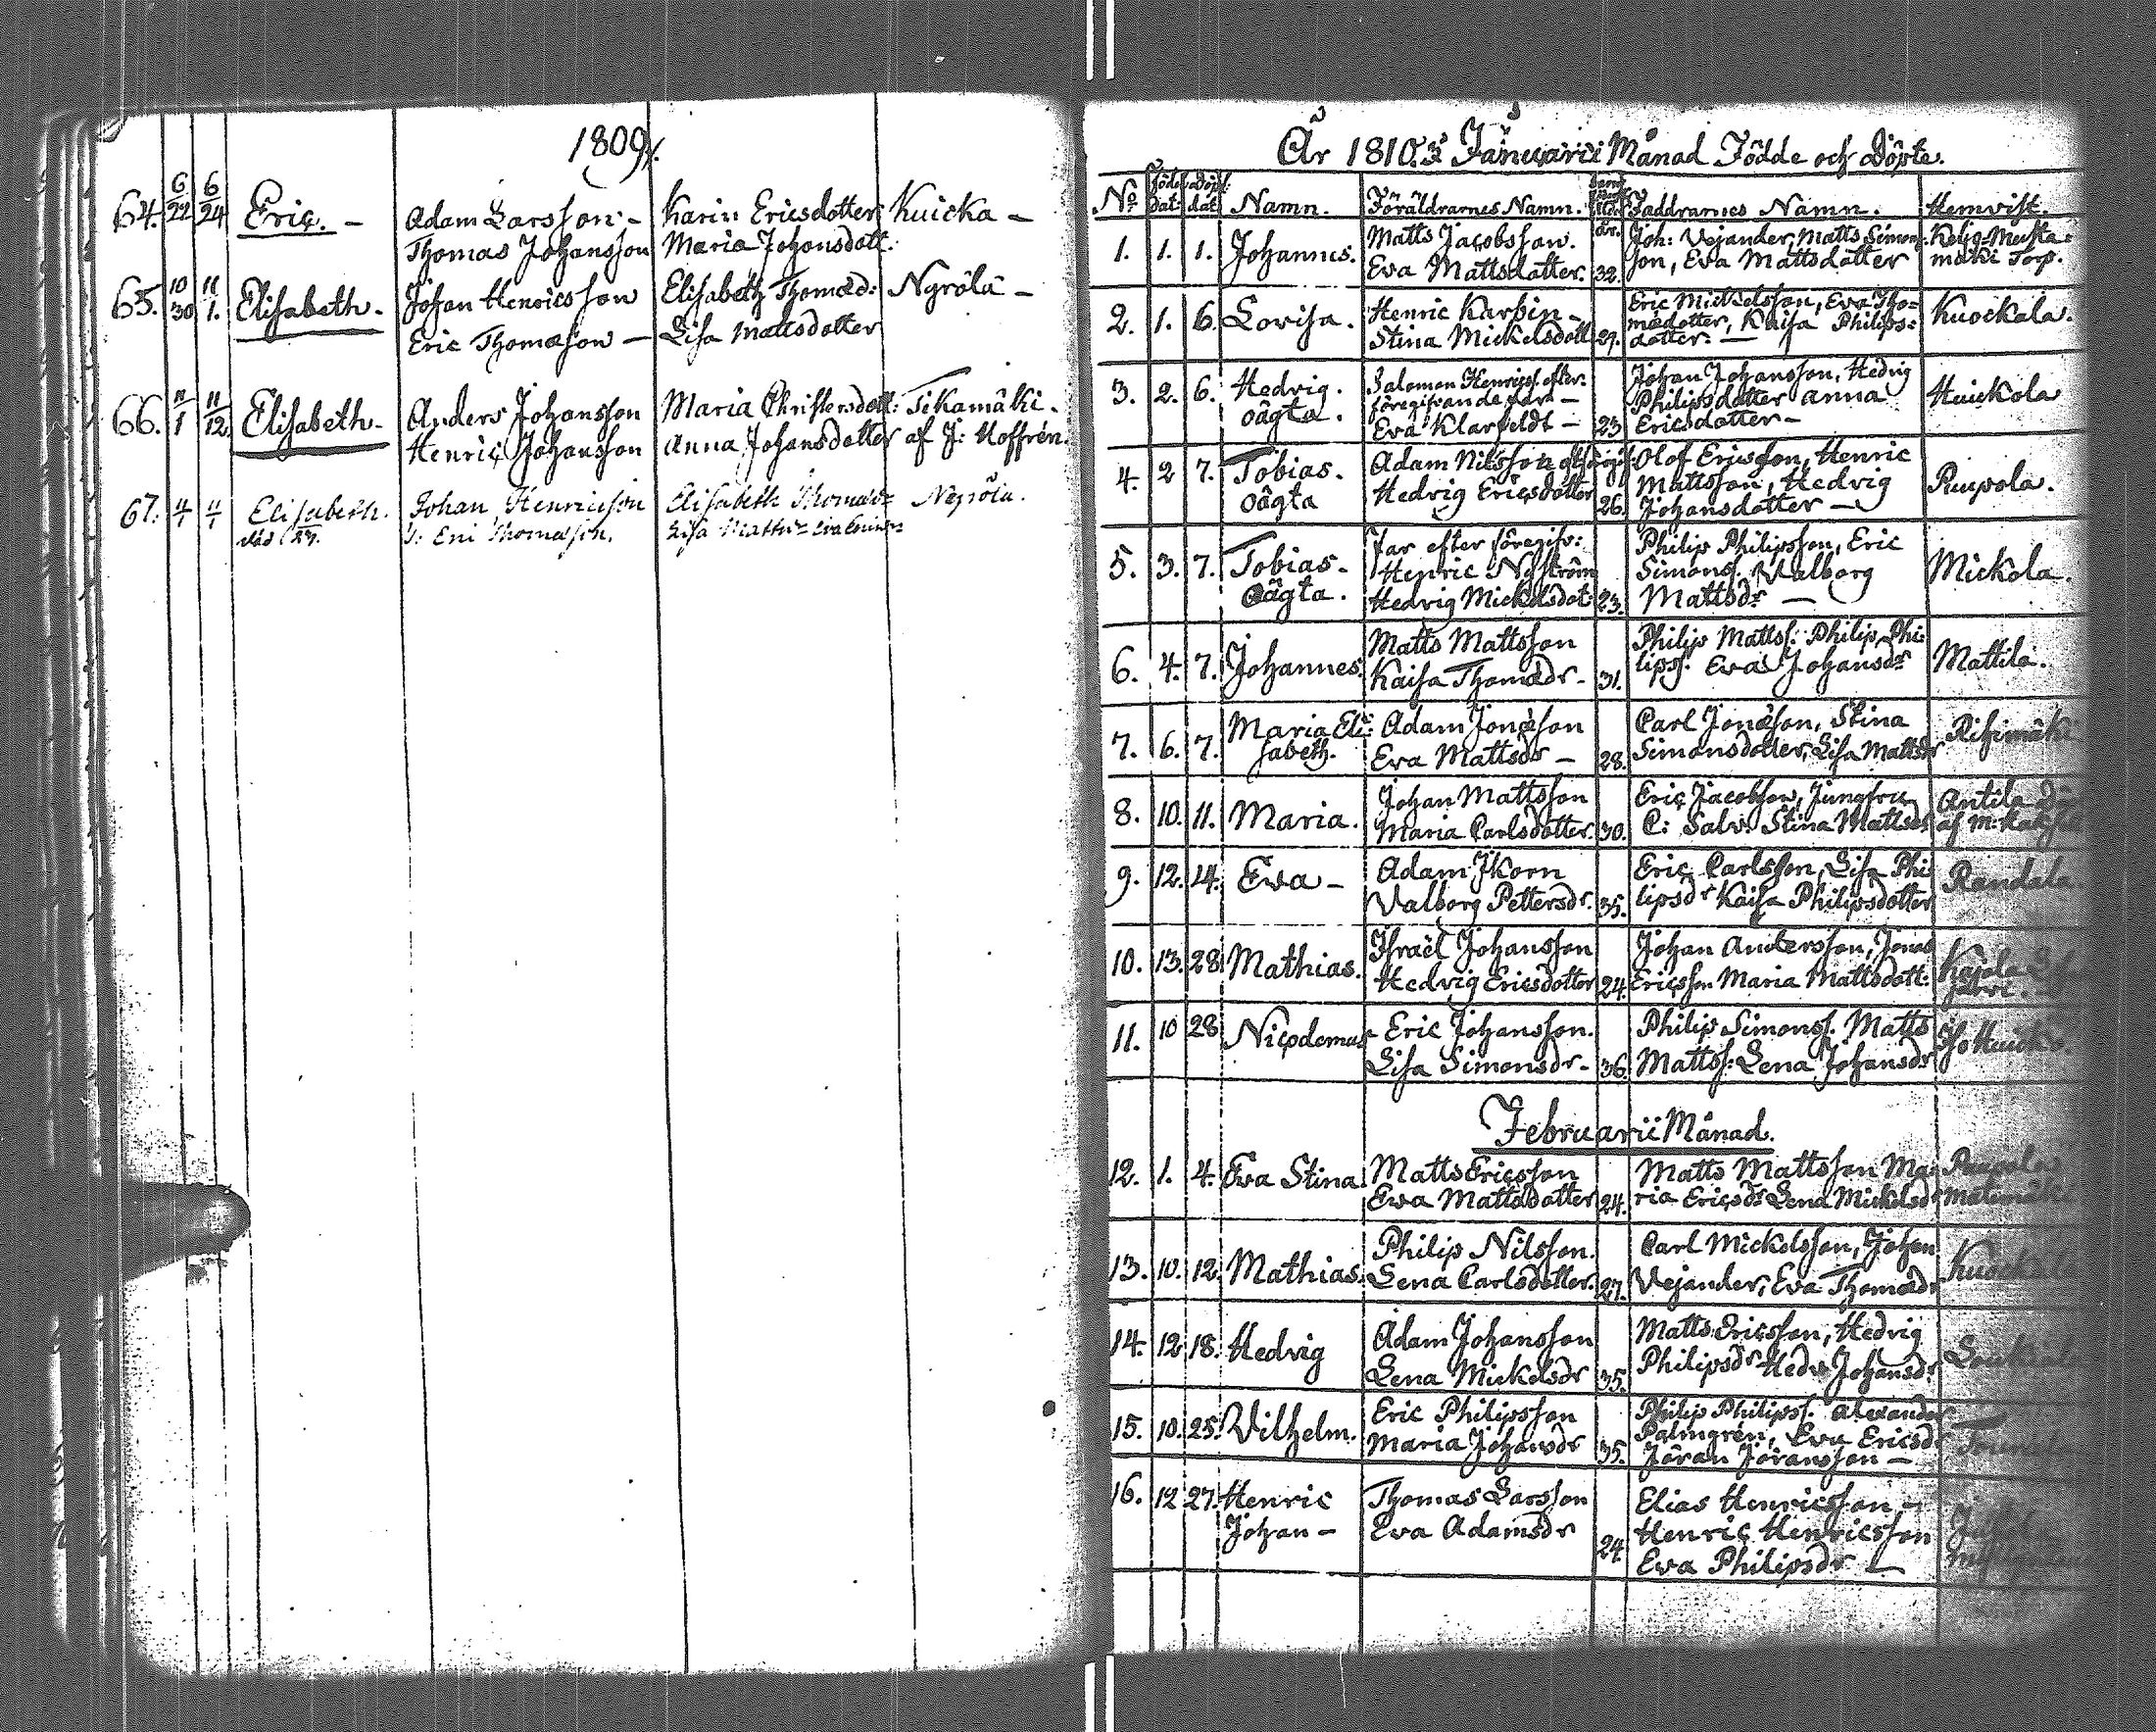 1809.
64. 6/22 6/24 Eric. - Adam Larsson - Karin Ericsdotter Kuicka -
Thomas Johansson Maria Johansdott:
65. 10/30 11/1. Elisabeth. Johan Henricsson Elisabeth Thomæd: Nyrölä -
Eric Thomasson - Lisa Mattsdotter
66. 11/1 11/12 Elisabeth - Anders Johansson Maria Christersdott: Tikamäki.
Henric Johansson Anna Johansdotter af J: Hoffrén.
67. 11/1 11/1 Elisabeth. Johan Henricsson Elisabeth Thomæd=
Thomasson. Lisa Matts=
År 1810. Januarii Månad Födde och Döpte.
No Föd. dat: Döpt. dat Namn. Föräldrarnes Namn. Faddrarnes Namn. Hemvist.
1. 1. 1. Johannes. Matts Jacobsson. Joh: Vejander, Matts Simons-
Eva Mattsdotter. 32. son, Eva Mattsdotter mäki Torp.
2. 1. 6. Lovisa. Henric Karpin - Eric Mickelsson, Eva Tho=
Stina Mickelsdott 29. mædotter, Kaisa Philips=
dotter. - Kuockala.
3. 2. 6. Hedvig. Salomon Henricss. efter Johan Johansson, Hedvig
oägta. föregifvande far - Philipsdotter Anna Huickola
Eva Klarfeldt - 23 Ericsdotter -
4. 2 7. Tobias. Adam Nilsson Olof Ericsson, Henric
oägta Hedvig Ericsdotter 26. Mattsson, Hedvig Puupola.
Johansdotter -
5. 3. 7. Tobias. Far efter föregifv: Philip Philipsson, Eric
oägta. Henric Nyström Simonss. Valborg Mickola.
Hedvig Mickelsdot: 23. Mattsdr -
6. 4. 7. Johannes. Matts Mattsson Philip Mattss. Philip Phi-
Kaisa Thomædr - 31. lipss. Eva Johansdr Mattila.
7. 6. 7. Maria Eli= Adam Jonasson Carl Jonæson, Stina
sabeth. Eva Mattsdr - 28. Simonsdotter, Lisa Mattsdr Risimäki
8. 10. 11. Maria. Johan Mattsson Eric Jacobsson, Jungfru Antila
Maria Carlsdotter. 30. C: Salv: Stina Mattsdr
9. 12. 14. Eva - Adam Ikorn Eric Carlsson, Lisa Phi
Valborg Pettersdr. 35. lipsdr Kaisa Philipsdotter Randala
10. 13. 28. Mathias. Israel Johansson Johan Andersson, Jonas
Hedvig Ericsdotter 24. Ericsson Maria Mattsdott:
11. 10 28 Nicodemus Eric Johansson. Philip Simonss. Matts
Lisa Simonsdr - 36. Mattss: Lena Johansdr
Februarii Månad.
12. 1. 4. Eva Stina. Matts Ericsson Matts Mattsson Ma- Puupola
Eva Mattsdotter 24. ria Ericsdr Lena Mickelsdr
13. 10. 12. Mathias. Philip Nilsson. Carl Mickelsson, Johan
Lena Carlsdotter. 27. Vejander, Eva Thomædr Kuockala
14. 12 18. Hedvig Adam Johansson Matts Ericsson, Hedvig
Lena Mickelsdr 35. Philipsdr Hedv: Johansdr
15. 10. 25. Vilhelm. Eric Philipsson Philip Philipss. Alexander
Maria Johansdr 35. Palmgrén, Eva Ericsdr
Jöran Jöransson -
16. 12 27. Henric Thomas Larsson Elias Henricsson -
Johan - Eva Adamsdr 24. Henric Henricsson
Eva Philipsdr -